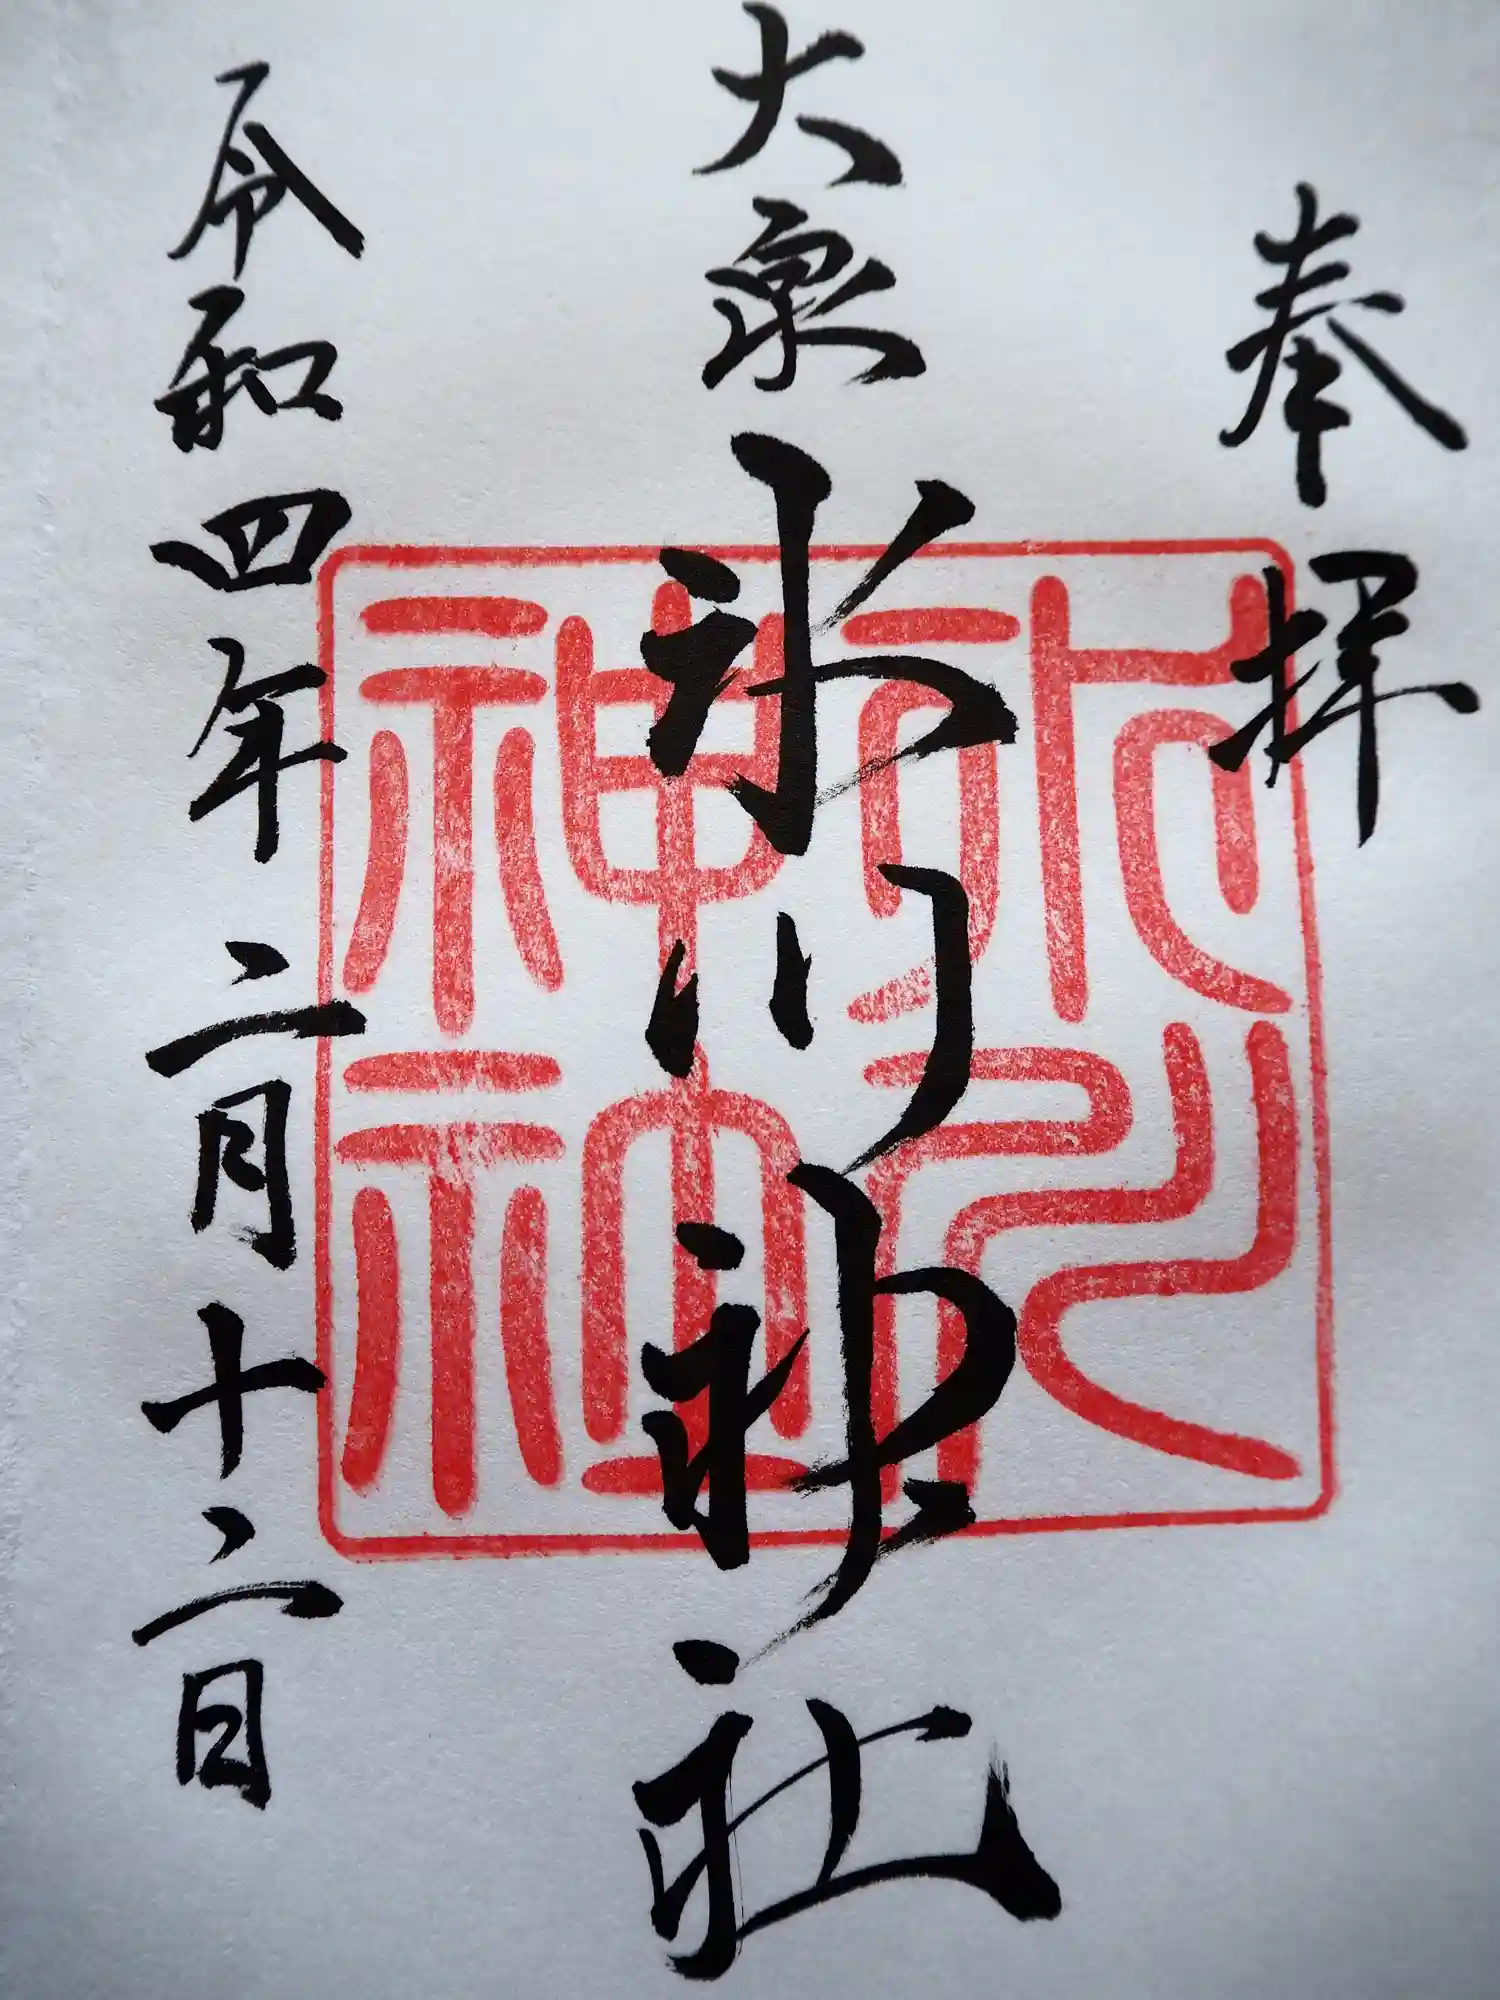 奉拝
大泉氷川神社
令和四年二月十二日
氷川神社